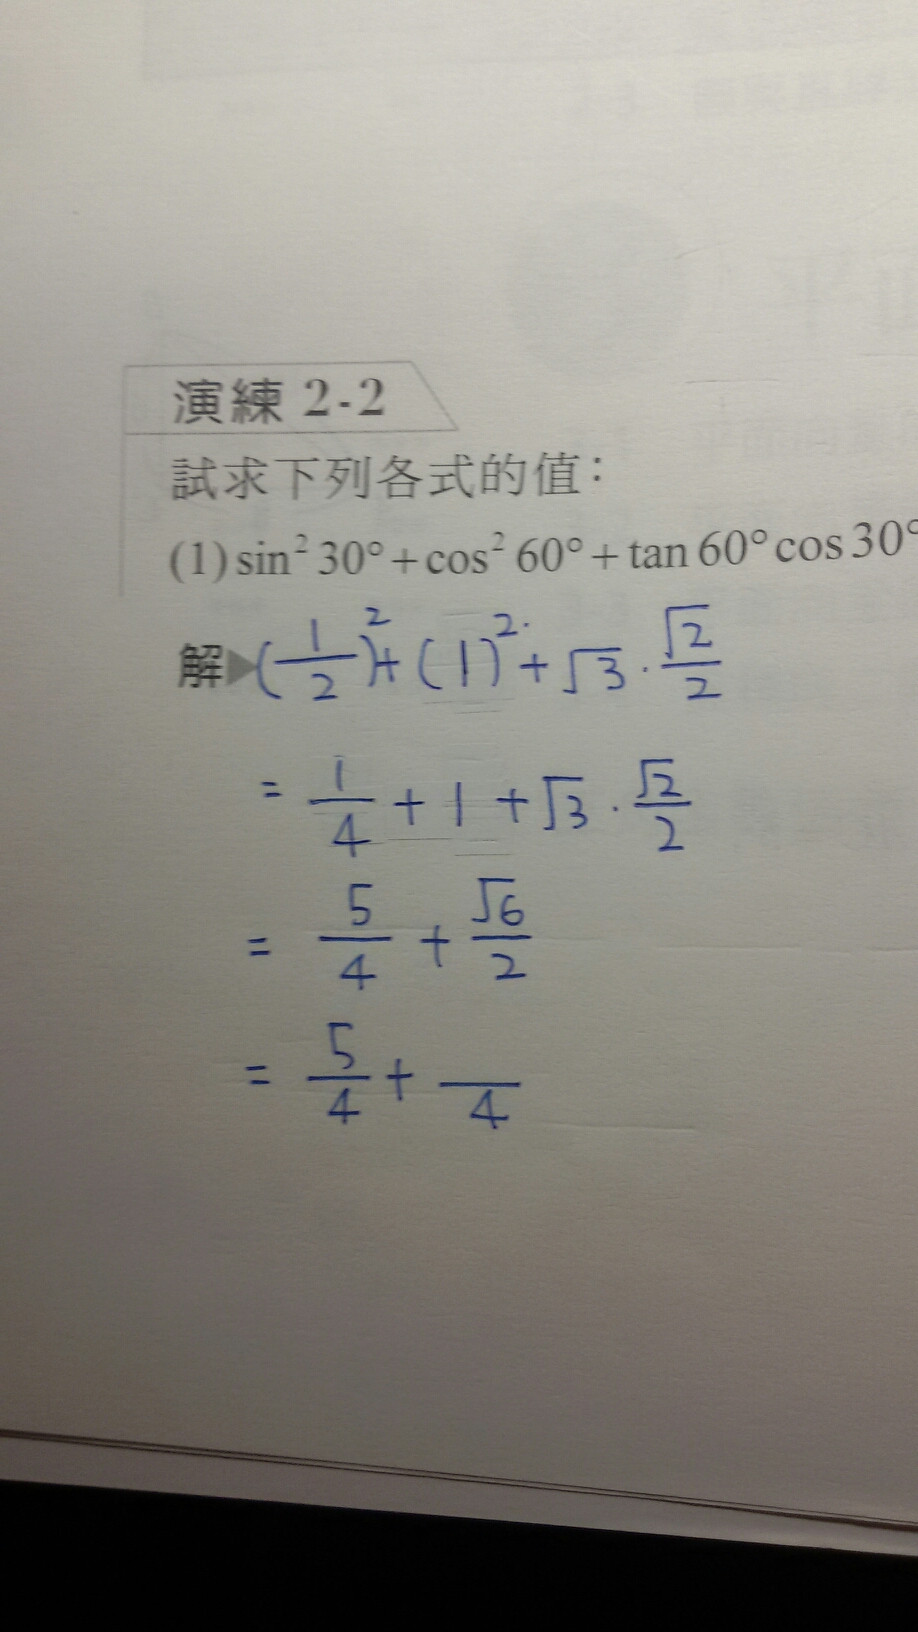 演練 2-2
試求下列各式的值：
(1) sin² 30° + cos² 60° + tan 60° cos 30°
解▶ (1/2)² + (1)² + √3 · √2/2
= 1/4 + 1 + √3 · √2/2
= 5/4 + √6/2
= 5/4 + /4